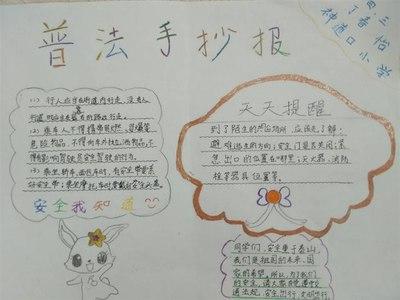 普法手抄报
四三
丁春怡
神道口小学
(1) 行人应在街道内行走,没有人
行道
(2) 乘车人不得携带易燃、易爆等
危险物品,不得向车外抛洒物品,不
得有影响驾驶员安全驾驶的行为。
(3) 乘坐轿车、面包车时,
好安全带;乘坐摩托车时要戴好安全头盔
安全我知道
天天提醒
到了陌生的场所,应该先了解:
避难逃生的方向;安全门是否关闭;紧
急出口的位置在哪里;灭火器、消防
栓等器具位置等。
同学们,安全重于泰山,
我们是祖国的未来、国
家的希望,所以,为了我们
的安全,请大家自觉遵守交
通法规,安全出行